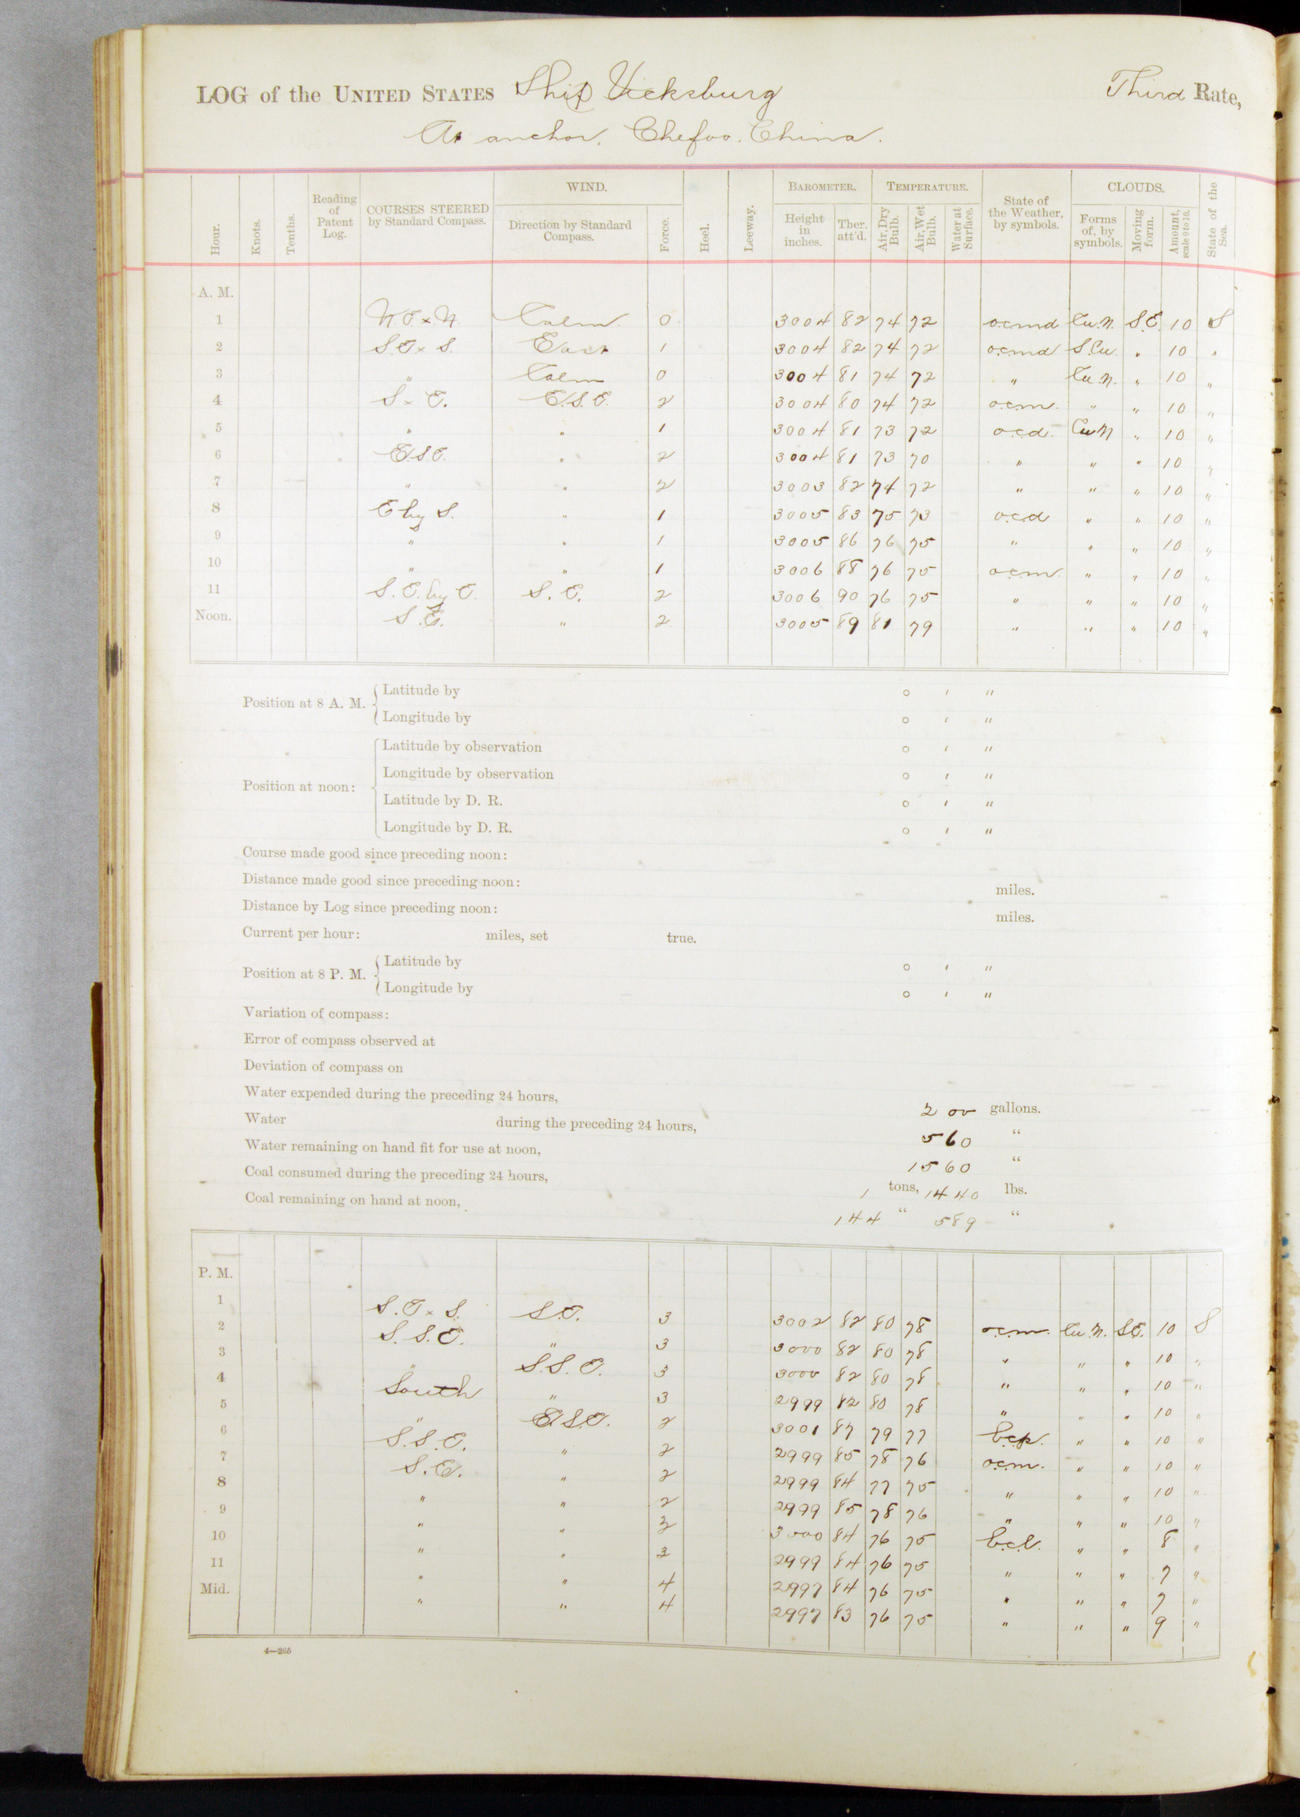 LOG of the UNITED STATES Ship Vicksburg Third Rate,
At anchor, Chefoo, China.
Hour. Knots. Tenths. Reading of Patent Log. COURSES STEERED by Standard Compass. WIND. Direction by Standard Compass. Force. Heel. Leeway. BAROMETER. Height in inches. Ther. att'd. TEMPERATURE. Air, Dry Bulb. Air, Wet Bulb. Water at Surface. State of the Weather, by symbols. CLOUDS. Forms of, by symbols. Moving form. Amount, scale 0 to 10. State of the Sea.
A. M.
1 N.E x N. Calm 0 3004 82 74 72 o.c.m.d Cu.N. S.E. 10 S
2 S.E x S. East 1 3004 82 74 72 o.c.m.d S.Cu. " 10 "
3 " Calm 0 3004 81 74 72 " Cu.N. " 10 "
4 S x E. E.S.E. 2 3004 80 74 72 o.c.m. " " 10 "
5 " " 1 3004 81 73 72 o.c.d. CuN " 10 "
6 E.S.E. " 2 3004 81 73 70 " " " 10 "
7 " " 2 3003 82 74 72 " " " 10 "
8 E by S. " 1 3005 83 75 73 o.c.d " " 10 "
9 " " 1 3005 86 76 75 " " " 10 "
10 " " 1 3006 88 76 75 o.c.m. " " 10 "
11 S.E. by E. S.E. 2 3006 90 76 75 " " " 10 "
Noon. S.E. " 2 3005 89 81 79 " " " 10 "
Position at 8 A. M. Latitude by ° ' "
Longitude by ° ' "
Position at noon: Latitude by observation ° ' "
Longitude by observation ° ' "
Latitude by D. R. ° ' "
Longitude by D. R. ° ' "
Course made good since preceding noon:
Distance made good since preceding noon: miles.
Distance by Log since preceding noon: miles.
Current per hour: miles, set true.
Position at 8 P. M. Latitude by ° ' "
Longitude by ° ' "
Variation of compass:
Error of compass observed at
Deviation of compass on
Water expended during the preceding 24 hours, 200 gallons.
Water during the preceding 24 hours, 560 "
Water remaining on hand fit for use at noon, 1560 "
Coal consumed during the preceding 24 hours, 1 tons, 1440 lbs.
Coal remaining on hand at noon, 144 " 589 "
P. M.
1 S.E x S. S.E. 3 3002 82 80 78 o.c.m. Cu.N. S.E. 10 S
2 S.S.E. " 3 3000 82 80 78 " " " 10 "
3 " S.S.E. 3 3000 82 80 78 " " " 10 "
4 South " 3 2999 82 80 78 " " " 10 "
5 " E.S.E. 2 3001 87 79 77 b.c.p. " " 10 "
6 S.S.E. " 2 2999 85 78 76 o.c.m. " " 10 "
7 S.E. " 2 2999 84 77 75 " " " 10 "
8 " " 2 2999 85 78 76 " " " 10 "
9 " " 3 3000 84 76 75 b.c.l. " " 8 "
10 " " 3 2999 84 76 75 " " " 7 "
11 " " 4 2997 84 76 75 " " " 7 "
Mid. " " 4 2997 83 76 75 " " " 9 "
4—265